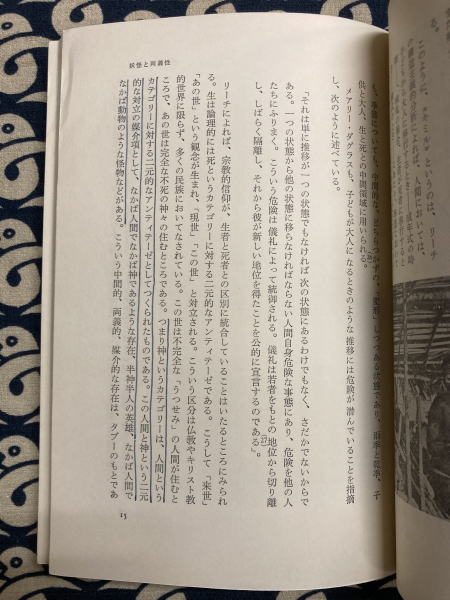 妖怪と両義性
このように、
というのは、リーチ
においては、
供と大人、生と死との中間領域に用いられる。
メアリー・ダグラスも、子どもが大人になるときのような推移には危険が潜んでいることを指摘
し、次のように述べている。
「それは単に推移が一つの状態でもなければ 次の状態にあるわけでもなく、さだかでないからで
ある。一つの状態から他の状態に移らなければならない人間自身危険な事態にあり、危険を他の人
たちにふりまく。こういう危険は儀礼によって統御される。儀礼は若者をもとの地位から切り離
し、しばらく隔離し、それから彼が新しい地位を得たことを公的に宣言するのである」。
リーチによれば、宗教的信仰が、生者と死者との区別に統合していることはいたるところにみられ
る。生は論理的には死というカテゴリーに対する二元的なアンティテーゼである。こうして「来世」
「あの世」という観念が生まれ、「現世」「この世」と対立される。こういう区分は仏教やキリスト教
的世界に限らず、多くの民族においてなされている。この世は不完全な「うつせみ」の人間が住むと
ころで、あの世は完全な不死の神々の住むところである。つまり神というカテゴリーは、人間という
カテゴリーに対する二元的なアンティテーゼとしてつくられたものである。この人間と神という二元
的な対立の媒介項として、なかば人間でなかば神であるような存在、半神半人の英雄、なかば人間で
なかば動物のような怪物などがある。こういう中間的、両義的、媒介的な存在は、タブーのもとであ
15